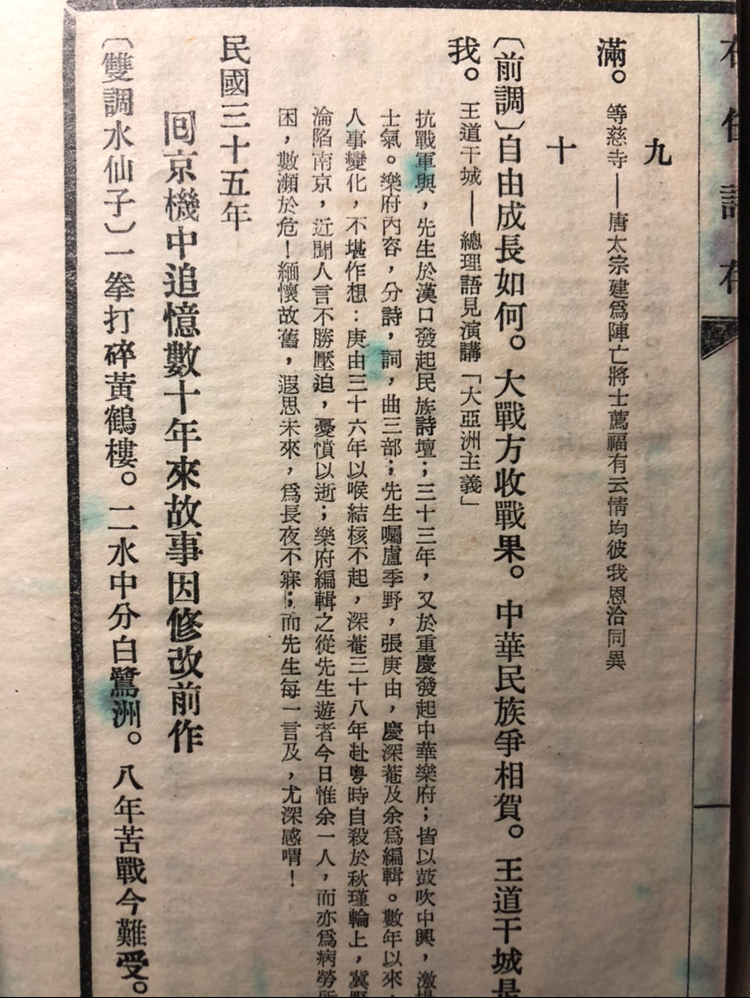 右任詩存
九
滿。等慈寺——唐太宗建爲陣亡將士薦福有云情均彼我恩洽同異
十
〔前調〕自由成長如何。大戰方收戰果。中華民族爭相賀。王道干城是
我。王道干城——總理語見演講「大亞洲主義」
抗戰軍興，先生於漢口發起民族詩壇；三十三年，又於重慶發起中華樂府；皆以鼓吹中興，激揚
士氣。樂府內容，分詩，詞，曲三部；先生囑盧季野，張庚由，慶深菴及余爲編輯。數年以來，
人事變化，不堪作想：庚由三十六年以喉結核不起，深菴三十八年赴粵時自殺於秋瑾輪上，冀野
淪陷南京，近聞人言不勝壓迫，憂憤以逝；樂府編輯之從先生遊者今日惟余一人，而亦爲病勞所
困，數瀕於危！緬懷故舊，遐思未來，爲長夜不寐；而先生每一言及，尤深感喟！
民國三十五年
回京機中追憶數十年來故事因修改前作
〔雙調水仙子〕一拳打碎黃鶴樓。二水中分白鷺洲。八年苦戰今難受。